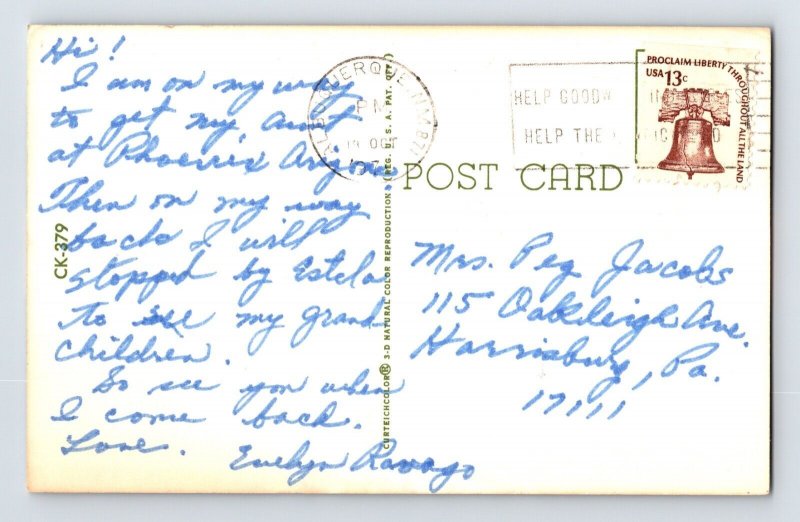 Hi!
I am on my way
to get my aunt
at Phoenix Arizona
Then on my way
back I will
stopped by Estela
to see my grand
children.
So see you when
I come back.
Love.
Evelyn Ravago
CK-379
CURTEICHCOLOR® 3-D NATURAL COLOR REPRODUCTION (REG. U.S.A. PAT. OFF.)
PM
OCT
HELP GOODW
HELP THE
PROCLAIM LIBERTY THROUGHOUT ALL THE LAND
USA 13c
POST CARD
Mrs. Peg Jacobs
115 Oakleigh Ave.
Harrisburg, Pa.
17111